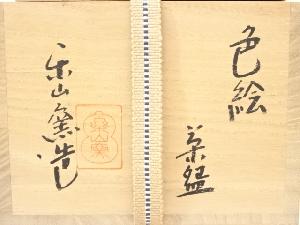 色絵
茶盌
楽山窯造